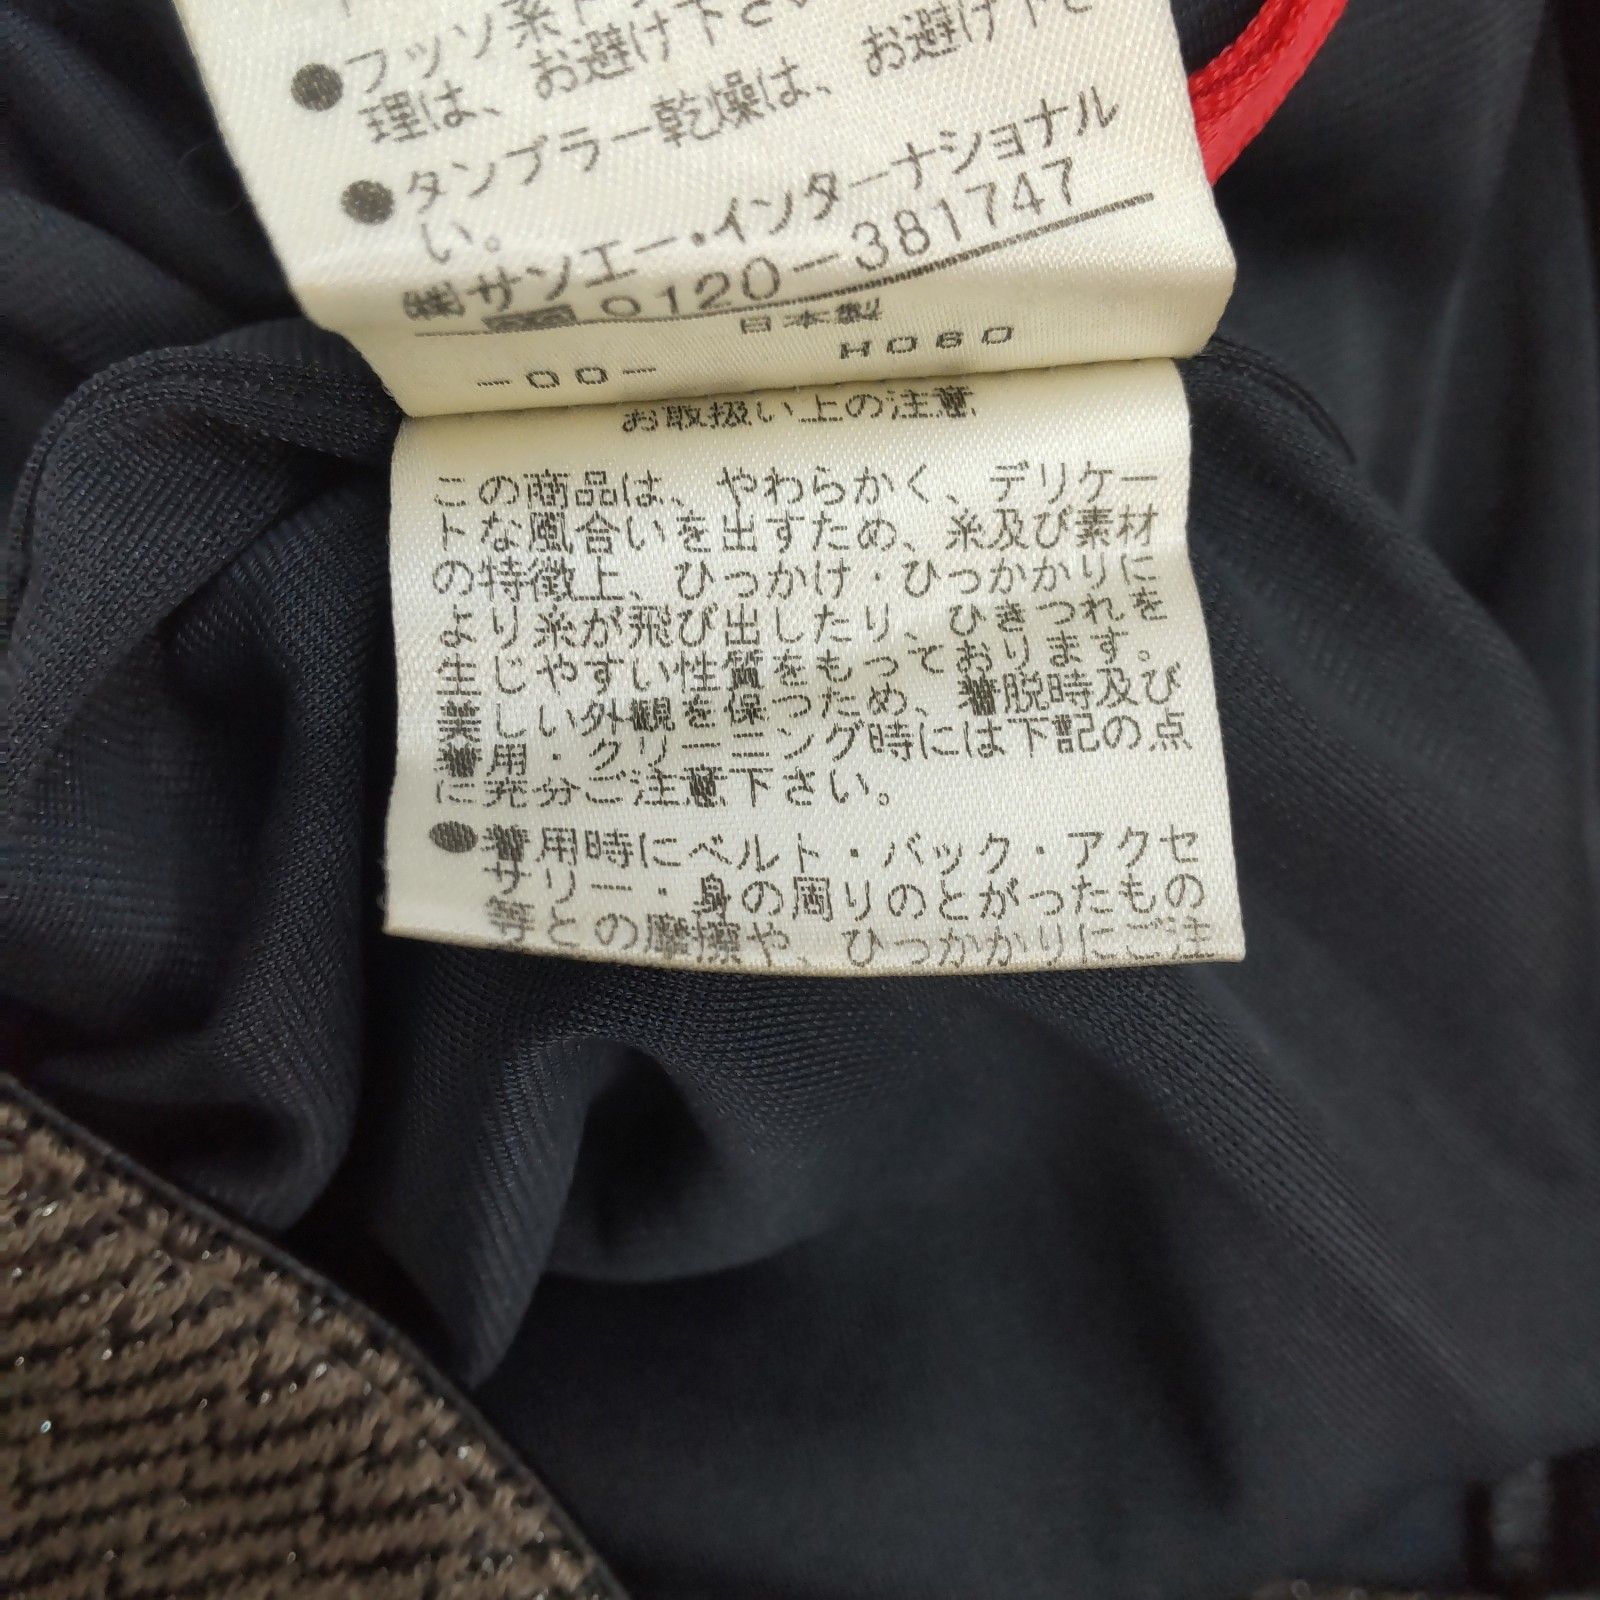 ●フッソ系ド
理は、お避け下さ
●タンブラー乾燥は、お避け下さ
い。
㈱サンエー・インターナショナル
0120-381747
日本製
H060
-00-
お取扱い上の注意
この商品は、やわらかく、デリケー
トな風合いを出すため、糸及び素材
の特徴上、ひっかけ・ひっかかりに
より糸が飛び出したり、ひきつれを
生じやすい性質をもっております。
美しい外観を保つため、着脱時及び
着用・クリーニング時には下記の点
に充分ご注意下さい。
●着用時にベルト・バック・アクセ
サリー・身の周りのとがったもの
等との摩擦や、ひっかかりにご注